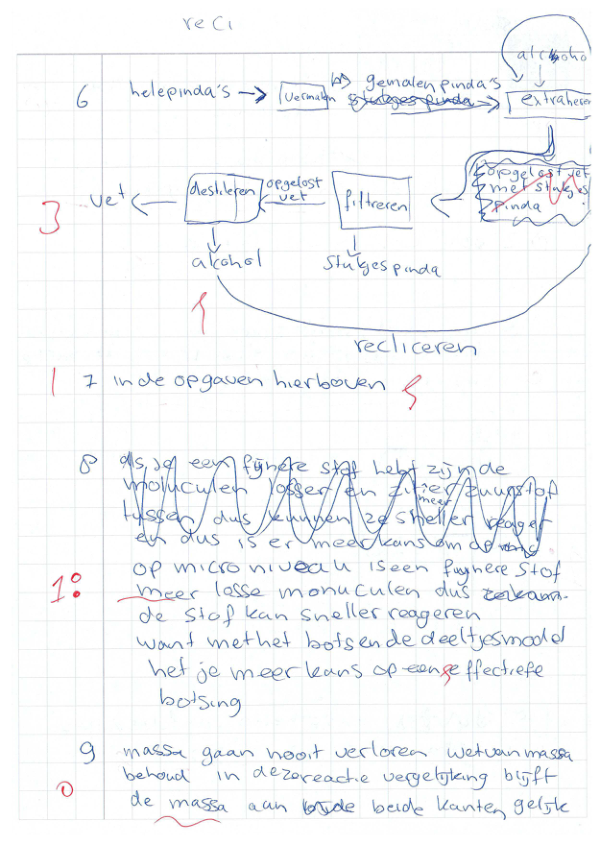 reci
alcoho
6 hele pinda's → vermalen b) gemalen pinda's
stukjes pinda → extraheren
opgelost vet
met stukjes
pinda
3 vet ← destileren opgelost
vet filtreren
alcohol stukjes pinda
recliceren
1 7 in de opgaven hierboven
8 als je een fijnere stof hebt zijn de
moluculen losser en zit er zuugstof
meer
tussen dus kunnen ze sneller reager
en dus is er meer kans om de
op micro niveau is een fijnere stof
1 meer losse monuculen dus
de stof kan sneller reageren
want met het botsende deeltjesmodel
het je meer kans op een effectiefe
botsing
9 massa gaan nooit verloren wet van massa
behoud in deze reactie vergelijking blijft
0 de massa aan beide kanten gelijk